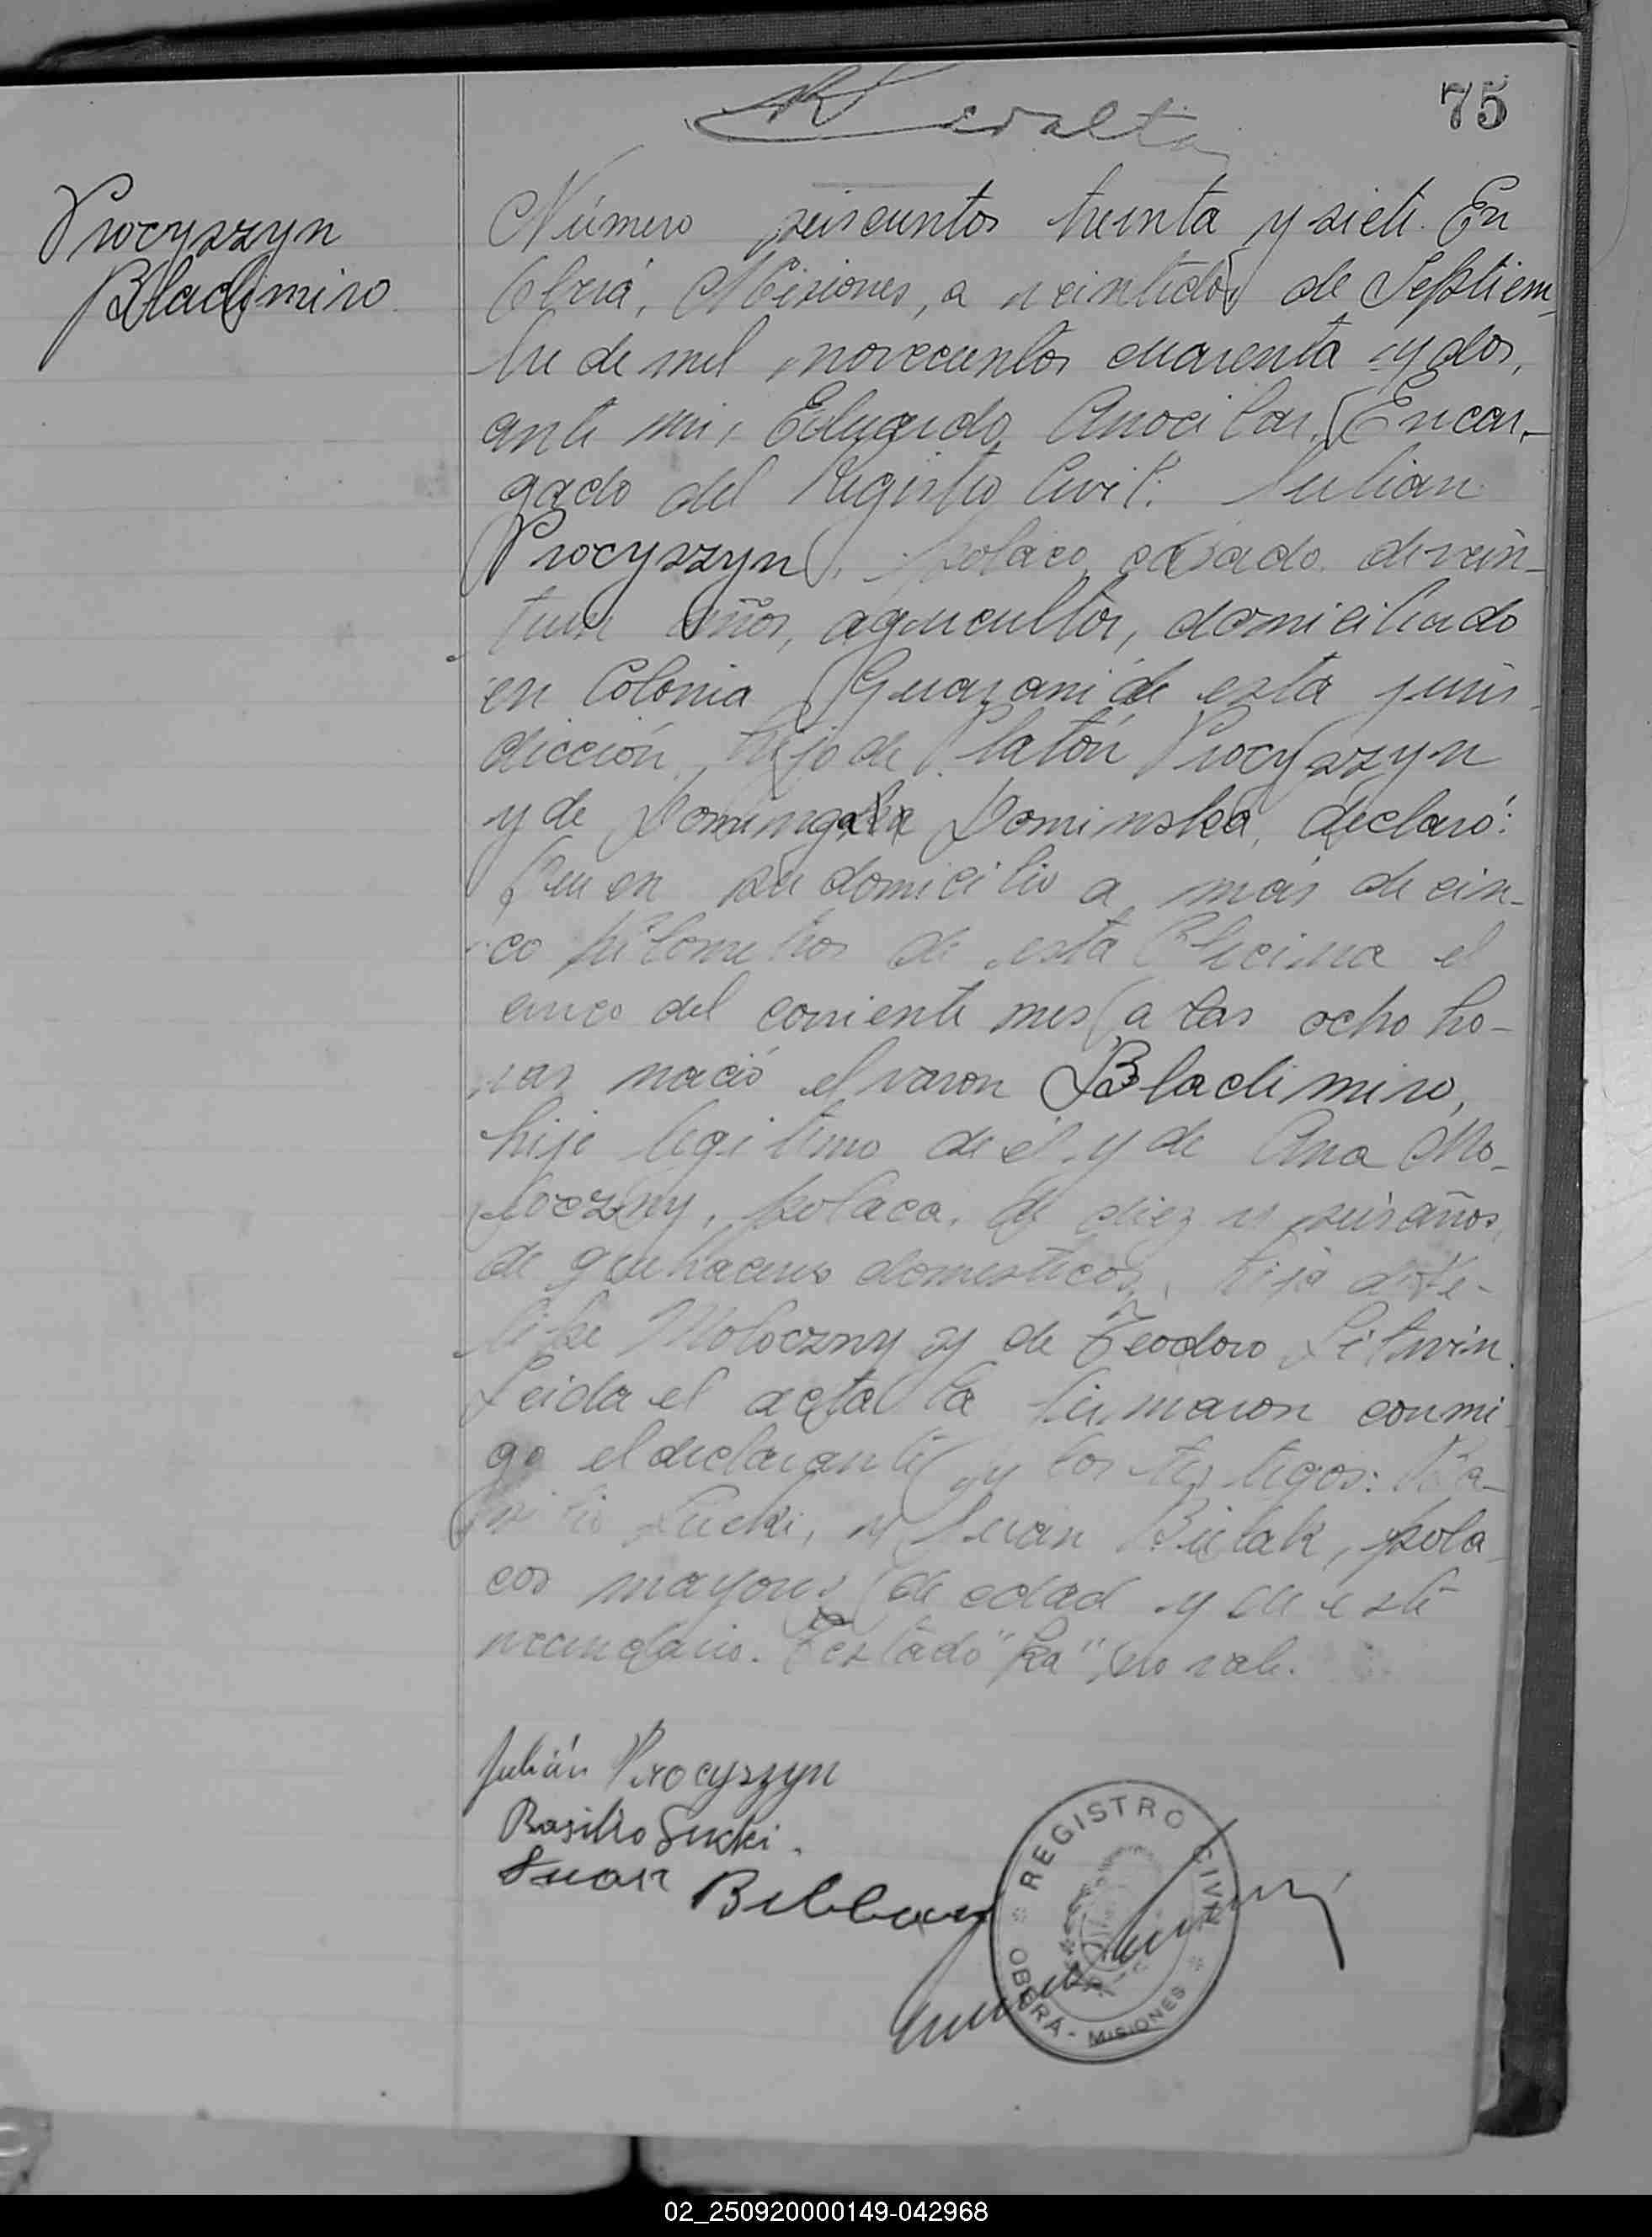 75
Procyszyn
Bladimiro
Número seiscientos treinta y siete. En
Oberá, Misiones, a veintidós de Septiem-
bre de mil novecientos cuarenta y dos,
ante mi, Eduardo Encar-
gado del Registro Civil: Julian
Procyszyn, polaco, casado, de vein-
tiun años, agricultor, domiciliado
en Colonia Guarani de esta juris-
dicción, hijo de Platón Procyszyn
y de Dominga Dominska, declaró:
Que en su domicilio a más de cin-
co kilometros de esta Oficina el
cinco del corriente mes a las ocho ho-
ras nació el varon Bladimiro,
hijo legitimo de él y de Ana Mo-
loczny, polaca, de diez y seis años,
de quehaceres domesticos, hija de
Moloczny y de Teodoro Litwin.
Leida el acta la firmaron conmi-
go el declarante y los testigos: Ba-
silio Sucki, y Juan Bielak, pola-
cos mayores de edad y de este
vecindario. Testado "ka", no vale.
Julián Procyszyn
Basilio Sucki.
Juan
REGISTRO CIVIL
OBERÁ - MISIONES
02_250920000149-042968